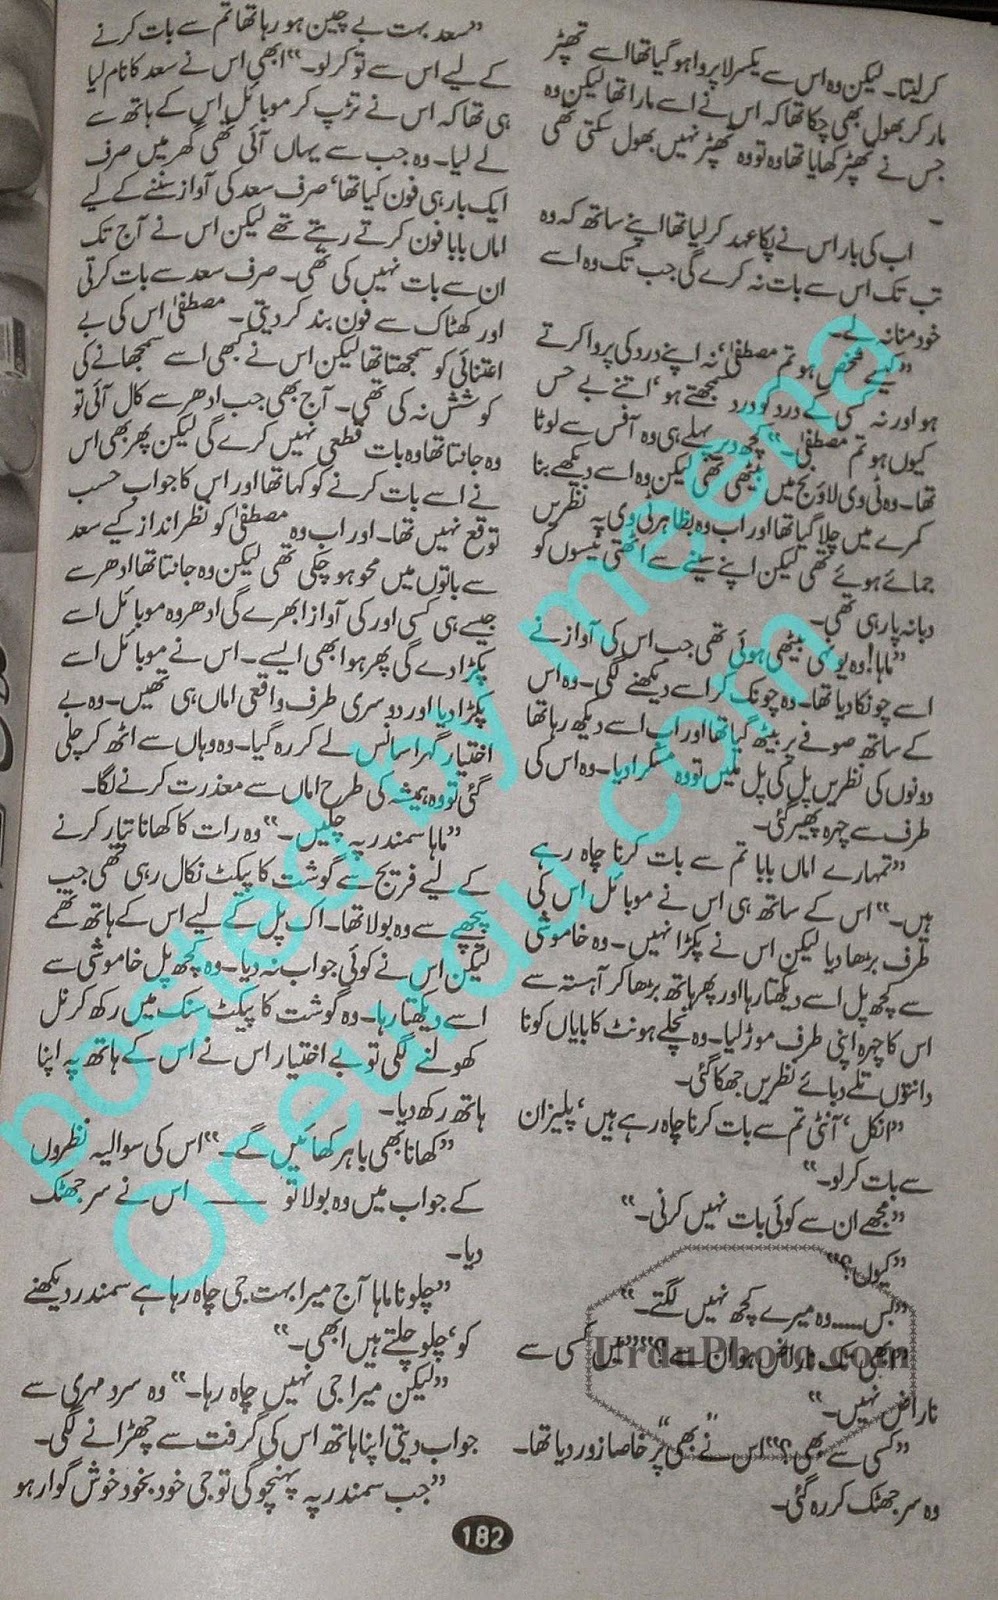 کرلیتا۔ لیکن وہ اس سے یکسر لاپروا ہوگیا تھا اسے تھپڑ
مار کر بھول بھی چکا تھا کہ اس نے اسے مارا تھا لیکن وہ
جس نے تھپڑ کھایا تھا وہ تو وہ تھپڑ نہیں بھول سکتی تھی
۔
اب کی بار اس نے پکا عہد کرلیا تھا اپنے ساتھ کہ وہ
تب تک اس سے بات نہ کرے گی جب تک وہ اسے
خود منا نہ لے۔
”کیسے شخص ہو تم مصطفیٰ‘ نہ اپنے درد کی پروا کرتے
ہو اور نہ کسی کے درد کو درد سمجھتے ہو‘ اتنے بے حس
کیوں ہو تم مصطفیٰ۔“ کچھ دیر پہلے ہی وہ آفس سے لوٹا
تھا۔ وہ ٹی وی لاؤنج میں بیٹھی تھی لیکن وہ اسے دیکھے بنا
کمرے میں چلا گیا تھا اور اب وہ بظاہر ٹی وی پہ نظریں
جمائے ہوئے تھی لیکن اپنے سینے سے اٹھتی ٹیسوں کو
دبا نہ پا رہی تھی۔
”ماہا! وہ یونہی بیٹھی ہوئی تھی جب اس کی آواز نے
اسے چونکا دیا تھا۔ وہ چونک کر اسے دیکھنے لگی۔ وہ اس
کے ساتھ صوفے پر بیٹھ گیا تھا اور اب اسے دیکھ رہا تھا
دونوں کی نظریں پل کی پل ملیں تو وہ مسکرا دیا۔ وہ اس کی
طرف سے چہرہ پھیر گئی۔
”تمہارے اماں بابا تم سے بات کرنا چاہ رہے
ہیں۔“ اس کے ساتھ ہی اس نے موبائل اس کی
طرف بڑھا دیا لیکن اس نے پکڑا نہیں۔ وہ خاموشی
سے کچھ پل اسے دیکھتا رہا اور پھر ہاتھ بڑھا کر آہستہ سے
اس کا چہرہ اپنی طرف موڑ لیا۔ وہ نچلے ہونٹ کا بایاں کونا
دانتوں تلے دبائے نظریں جھکا گئی۔
”انکل‘ آنٹی تم سے بات کرنا چاہ رہے ہیں‘ پلیز ان
سے بات کرلو۔“
”مجھے ان سے کوئی بات نہیں کرنی۔“
”کیوں؟“
”بس..... وہ میرے کچھ نہیں لگتے۔“
ناراض ہو ان سے؟“ ”میں کسی سے
ناراض نہیں۔“
”کسی سے بھی؟“ اس نے ”بھی“ پر خاصا زور دیا تھا۔
وہ سر جھٹک کر رہ گئی۔
”سعد بہت بے چین ہو رہا تھا تم سے بات کرنے
کے لیے اس سے تو کرلو۔“ ابھی اس نے سعد کا نام لیا
ہی تھا کہ اس نے تڑپ کر موبائل اس کے ہاتھ سے
لے لیا۔ وہ جب سے یہاں آئی تھی گھر میں صرف
ایک بار ہی فون کیا تھا‘ صرف سعد کی آواز سننے کے لیے
اماں بابا فون کرتے رہتے تھے لیکن اس نے آج تک
ان سے بات نہیں کی تھی۔ صرف سعد سے بات کرتی
اور کھٹاک سے فون بند کر دیتی۔ مصطفیٰ اس کی بے
اعتنائی کو سمجھتا تھا لیکن اس نے کبھی اسے سمجھانے کی
کوشش نہ کی تھی۔ آج بھی جب ادھر سے کال آئی تو
وہ جانتا تھا وہ بات قطعی نہیں کرے گی لیکن پھر بھی اس
نے اسے بات کرنے کو کہا تھا اور اس کا جواب حسب
توقع نہیں تھا۔ اور اب وہ مصطفیٰ کو نظر انداز کیے سعد
سے باتوں میں محو ہو چکی تھی لیکن وہ جانتا تھا ادھر سے
جیسے ہی کسی اور کی آواز ابھرے گی ادھر وہ موبائل اسے
پکڑا دے گی پھر ہوا بھی ایسے۔ اس نے موبائل اسے
پکڑا دیا اور دوسری طرف واقعی اماں ہی تھیں۔ وہ بے
اختیار گہرا سانس لے کر رہ گیا۔ وہ وہاں سے اٹھ کر چلی
گئی تو وہ ہمیشہ کی طرح اماں سے معذرت کرنے لگا۔
”ماہا سمندر پہ چلیں۔“ وہ رات کا کھانا تیار کرنے
کے لیے فریج سے گوشت کا پیکٹ نکال رہی تھی جب
پیچھے سے وہ بولا تھا۔ اک پل کے لیے اس کے ہاتھ تھمے
لیکن اس نے کوئی جواب نہ دیا۔ وہ کچھ پل خاموشی سے
اسے دیکھتا رہا۔ وہ گوشت کا پیکٹ سنک میں رکھ کر نل
کھولنے لگی تو بے اختیار اس نے اس کے ہاتھ پہ اپنا
ہاتھ رکھ دیا۔
”کھانا بھی باہر کھائیں گے۔“ اس کی سوالیہ نظروں
کے جواب میں وہ بولا تو ـــــــ اس نے سر جھٹک
دیا۔
”چلو نا ماہا آج میرا بہت جی چاہ رہا ہے سمندر دیکھنے
کو‘ چلو چلتے ہیں ابھی۔“
”لیکن میرا جی نہیں چاہ رہا۔“ وہ سرد مہری سے
جواب دیتی اپنا ہاتھ اس کی گرفت سے چھڑانے لگی۔
”جب سمندر پہ پہنچو گی تو جی خود بخود خوش گوار ہو
182
posted by meena
Oneurdu.com
UrduPhoto.com